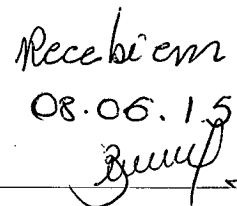 Recebi em
08.06.15